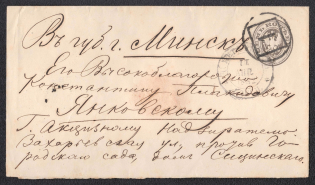 Въ губ. г. Минскъ
Его Высокоблагородію
Константину
Янковскому
Г. Акцизному Надзирателю
Захарьевская ул, противъ Го-
родского сада, домъ Сущинскаго.